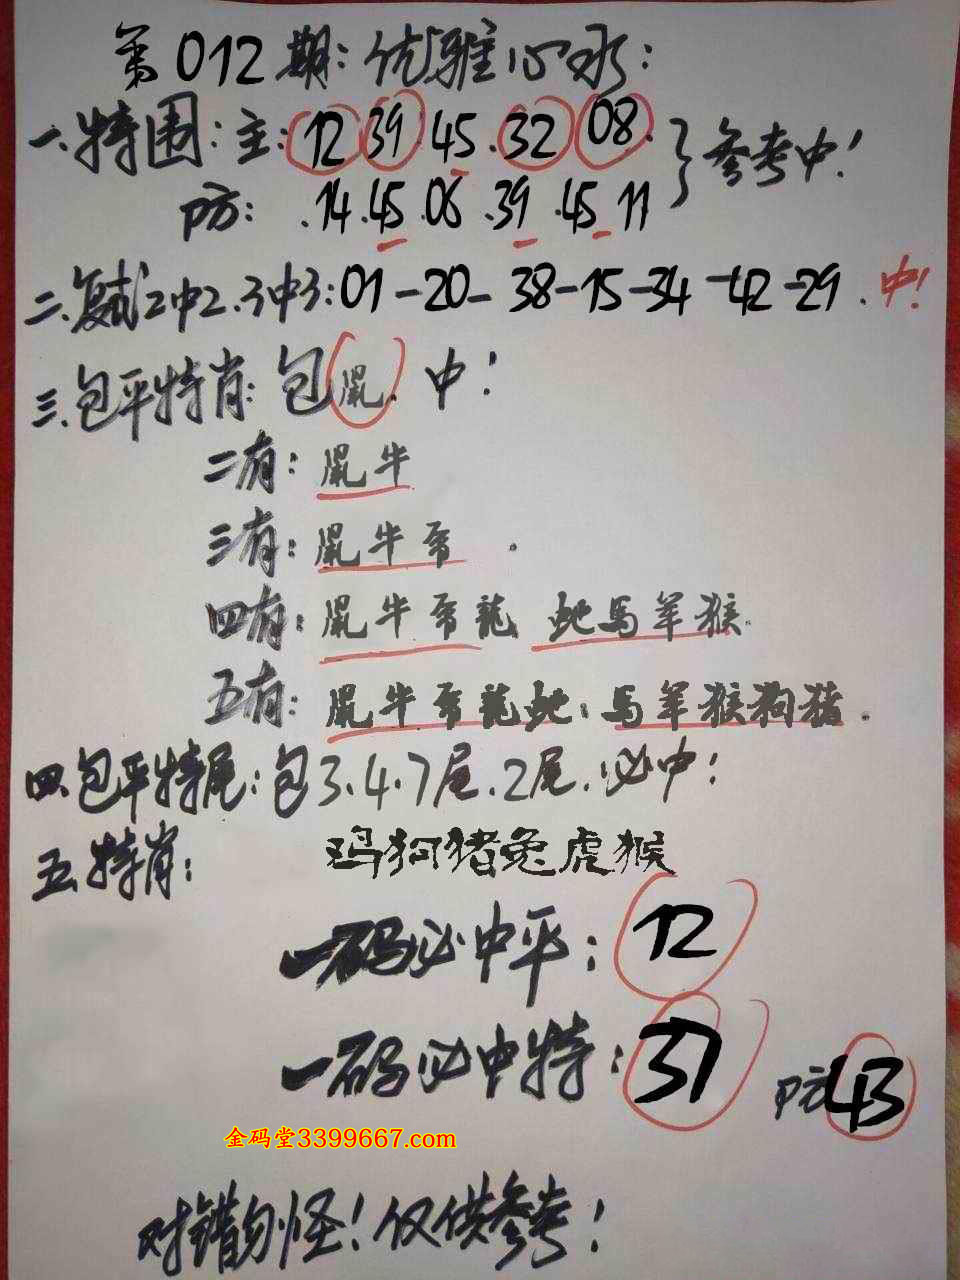 第012期：优雅心水：
一.特围：主：12 39.45.32 08.
防：.14.45.06.39.45.11
参考中！
二.复试2中2.3中3：01-20-38-15-34-42-29.中！
三.包平特肖：包鼠.中！
二有：鼠牛
三有：鼠牛兔.
四有：鼠牛兔龍 蛇馬羊猴.
五有：鼠牛兔龍蛇.馬羊猴狗猪.
四.包平特尾：包3.4.7尾.2尾.必中！
五.特肖：鸡狗猪兔虎猴
一码必中平：12
一码必中特：37 防43
金码堂3399667.com
对错勿怪！仅供参考！